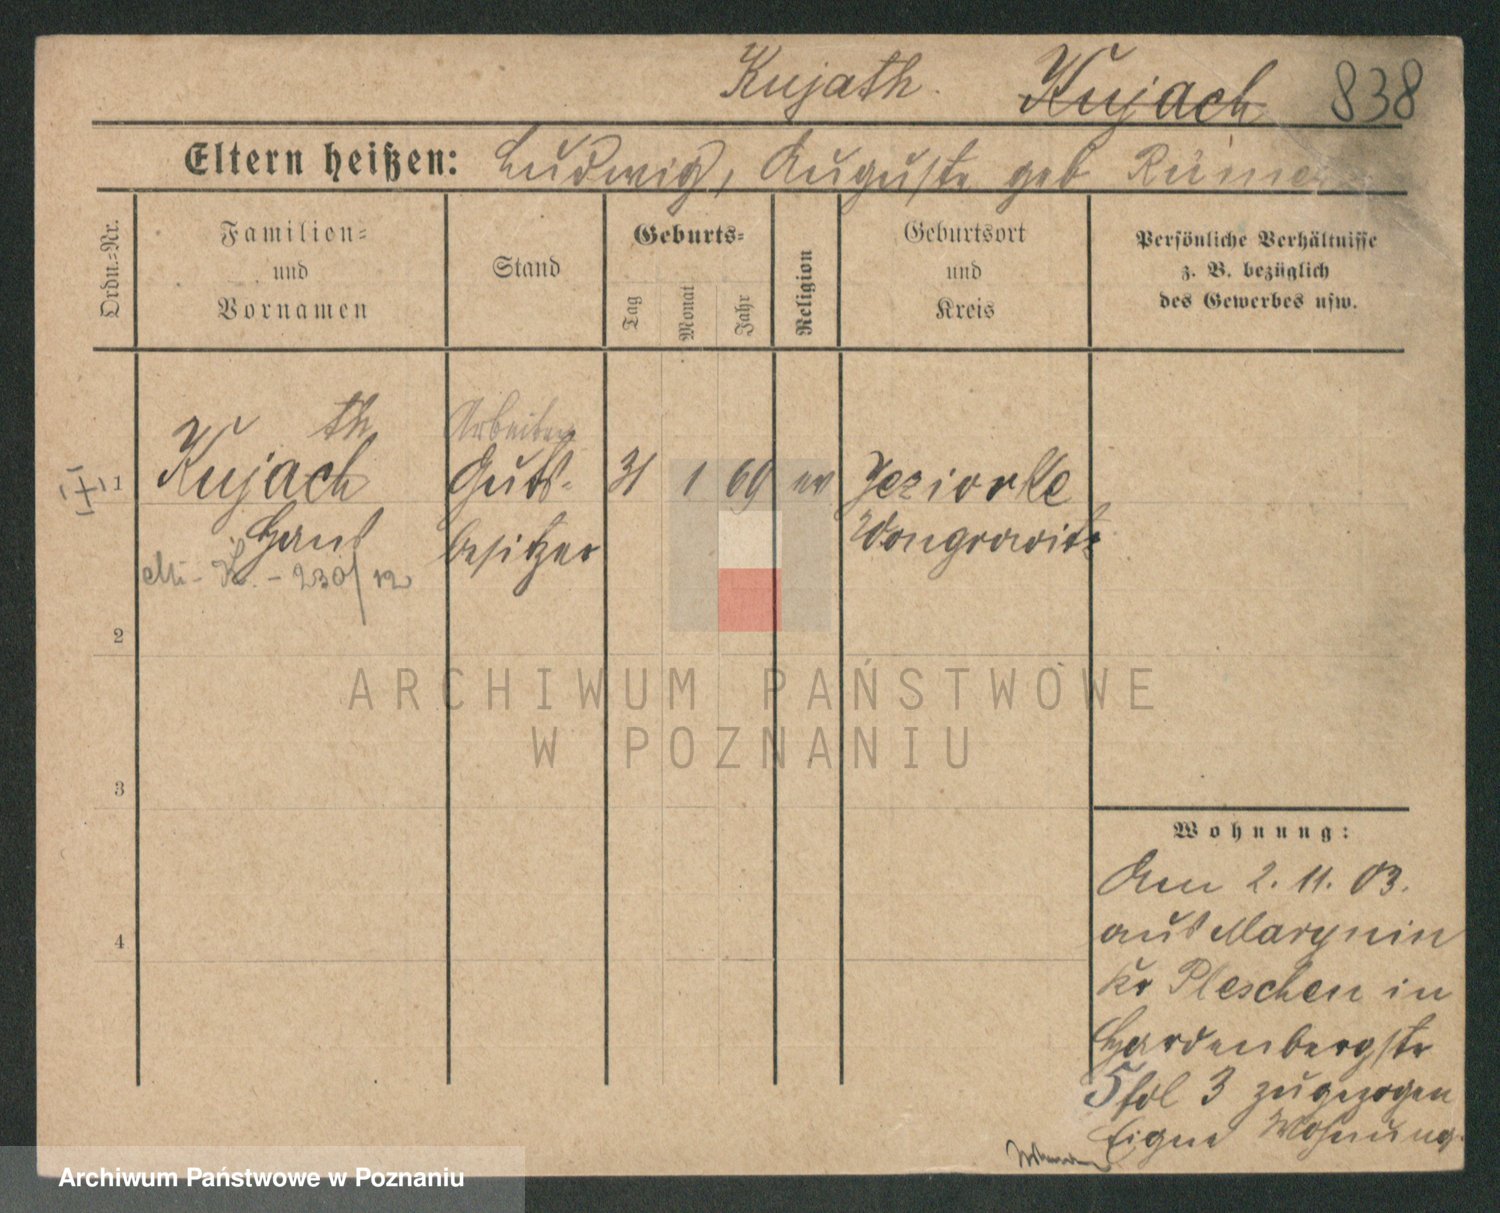 Kujath. Kujach 838
Eltern heißen: Ludwig, Auguste geb
Ordn.=Nr.
Familien=
und
Vornamen
Stand
Geburts=
Tag
Monat
Jahr
Religion
Geburtsort
und
Kreis
Persönliche Verhältnisse
z. B. bezüglich
des Gewerbes usw.
th
Arbeiter
1 Kujach Guts- 31 1 69 ev Jeziorke
Hans besitzer Wongrowitz
K. - 230/12
2
3
4
ARCHIWUM PAŃSTWOWE
W POZNANIU
Wohnung:
Am 2. 11. 03.
aus Marynin
Kr Pleschen in
Hardenbergstr
5 fol 3 zugezogen
Eigene Wohnung.
Archiwum Państwowe w Poznaniu